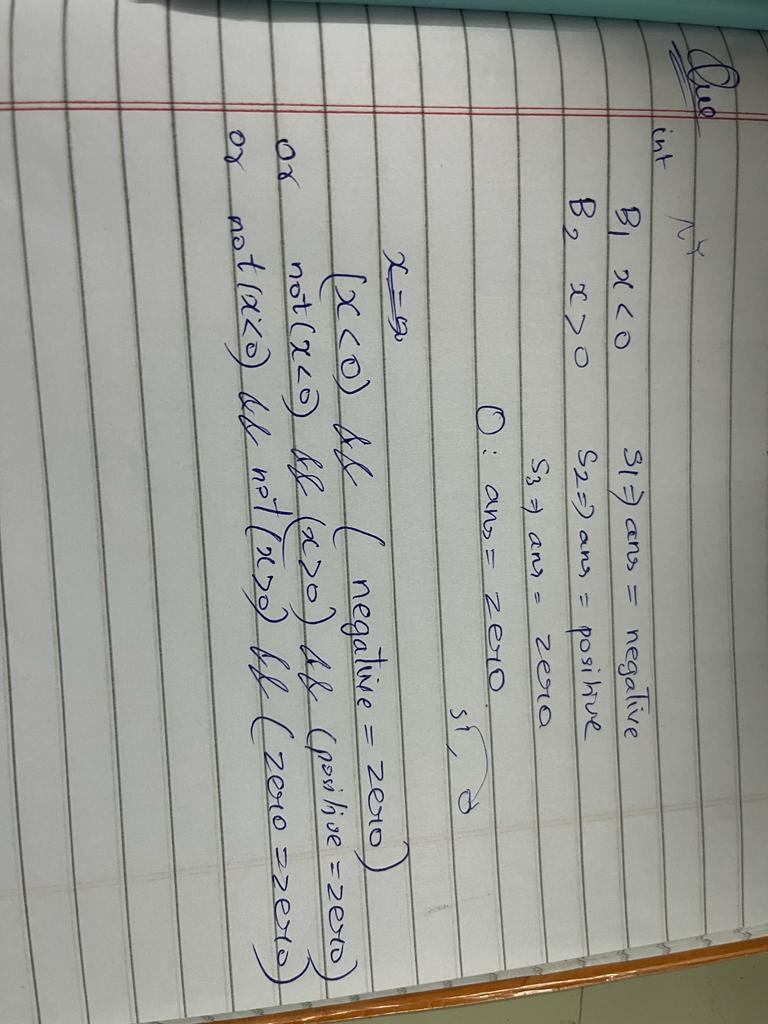 Que
int
B1 x < 0 S1 ⇒ ans = negative
B2 x > 0 S2 ⇒ ans = positive
S3 ⇒ ans = zero
O: ans = zero
S1,
(x < 0) && ( negative = zero)
or not (x < 0) && (x > 0) && (positive = zero)
or not (x < 0) && not (x > 0) && (zero = zero)